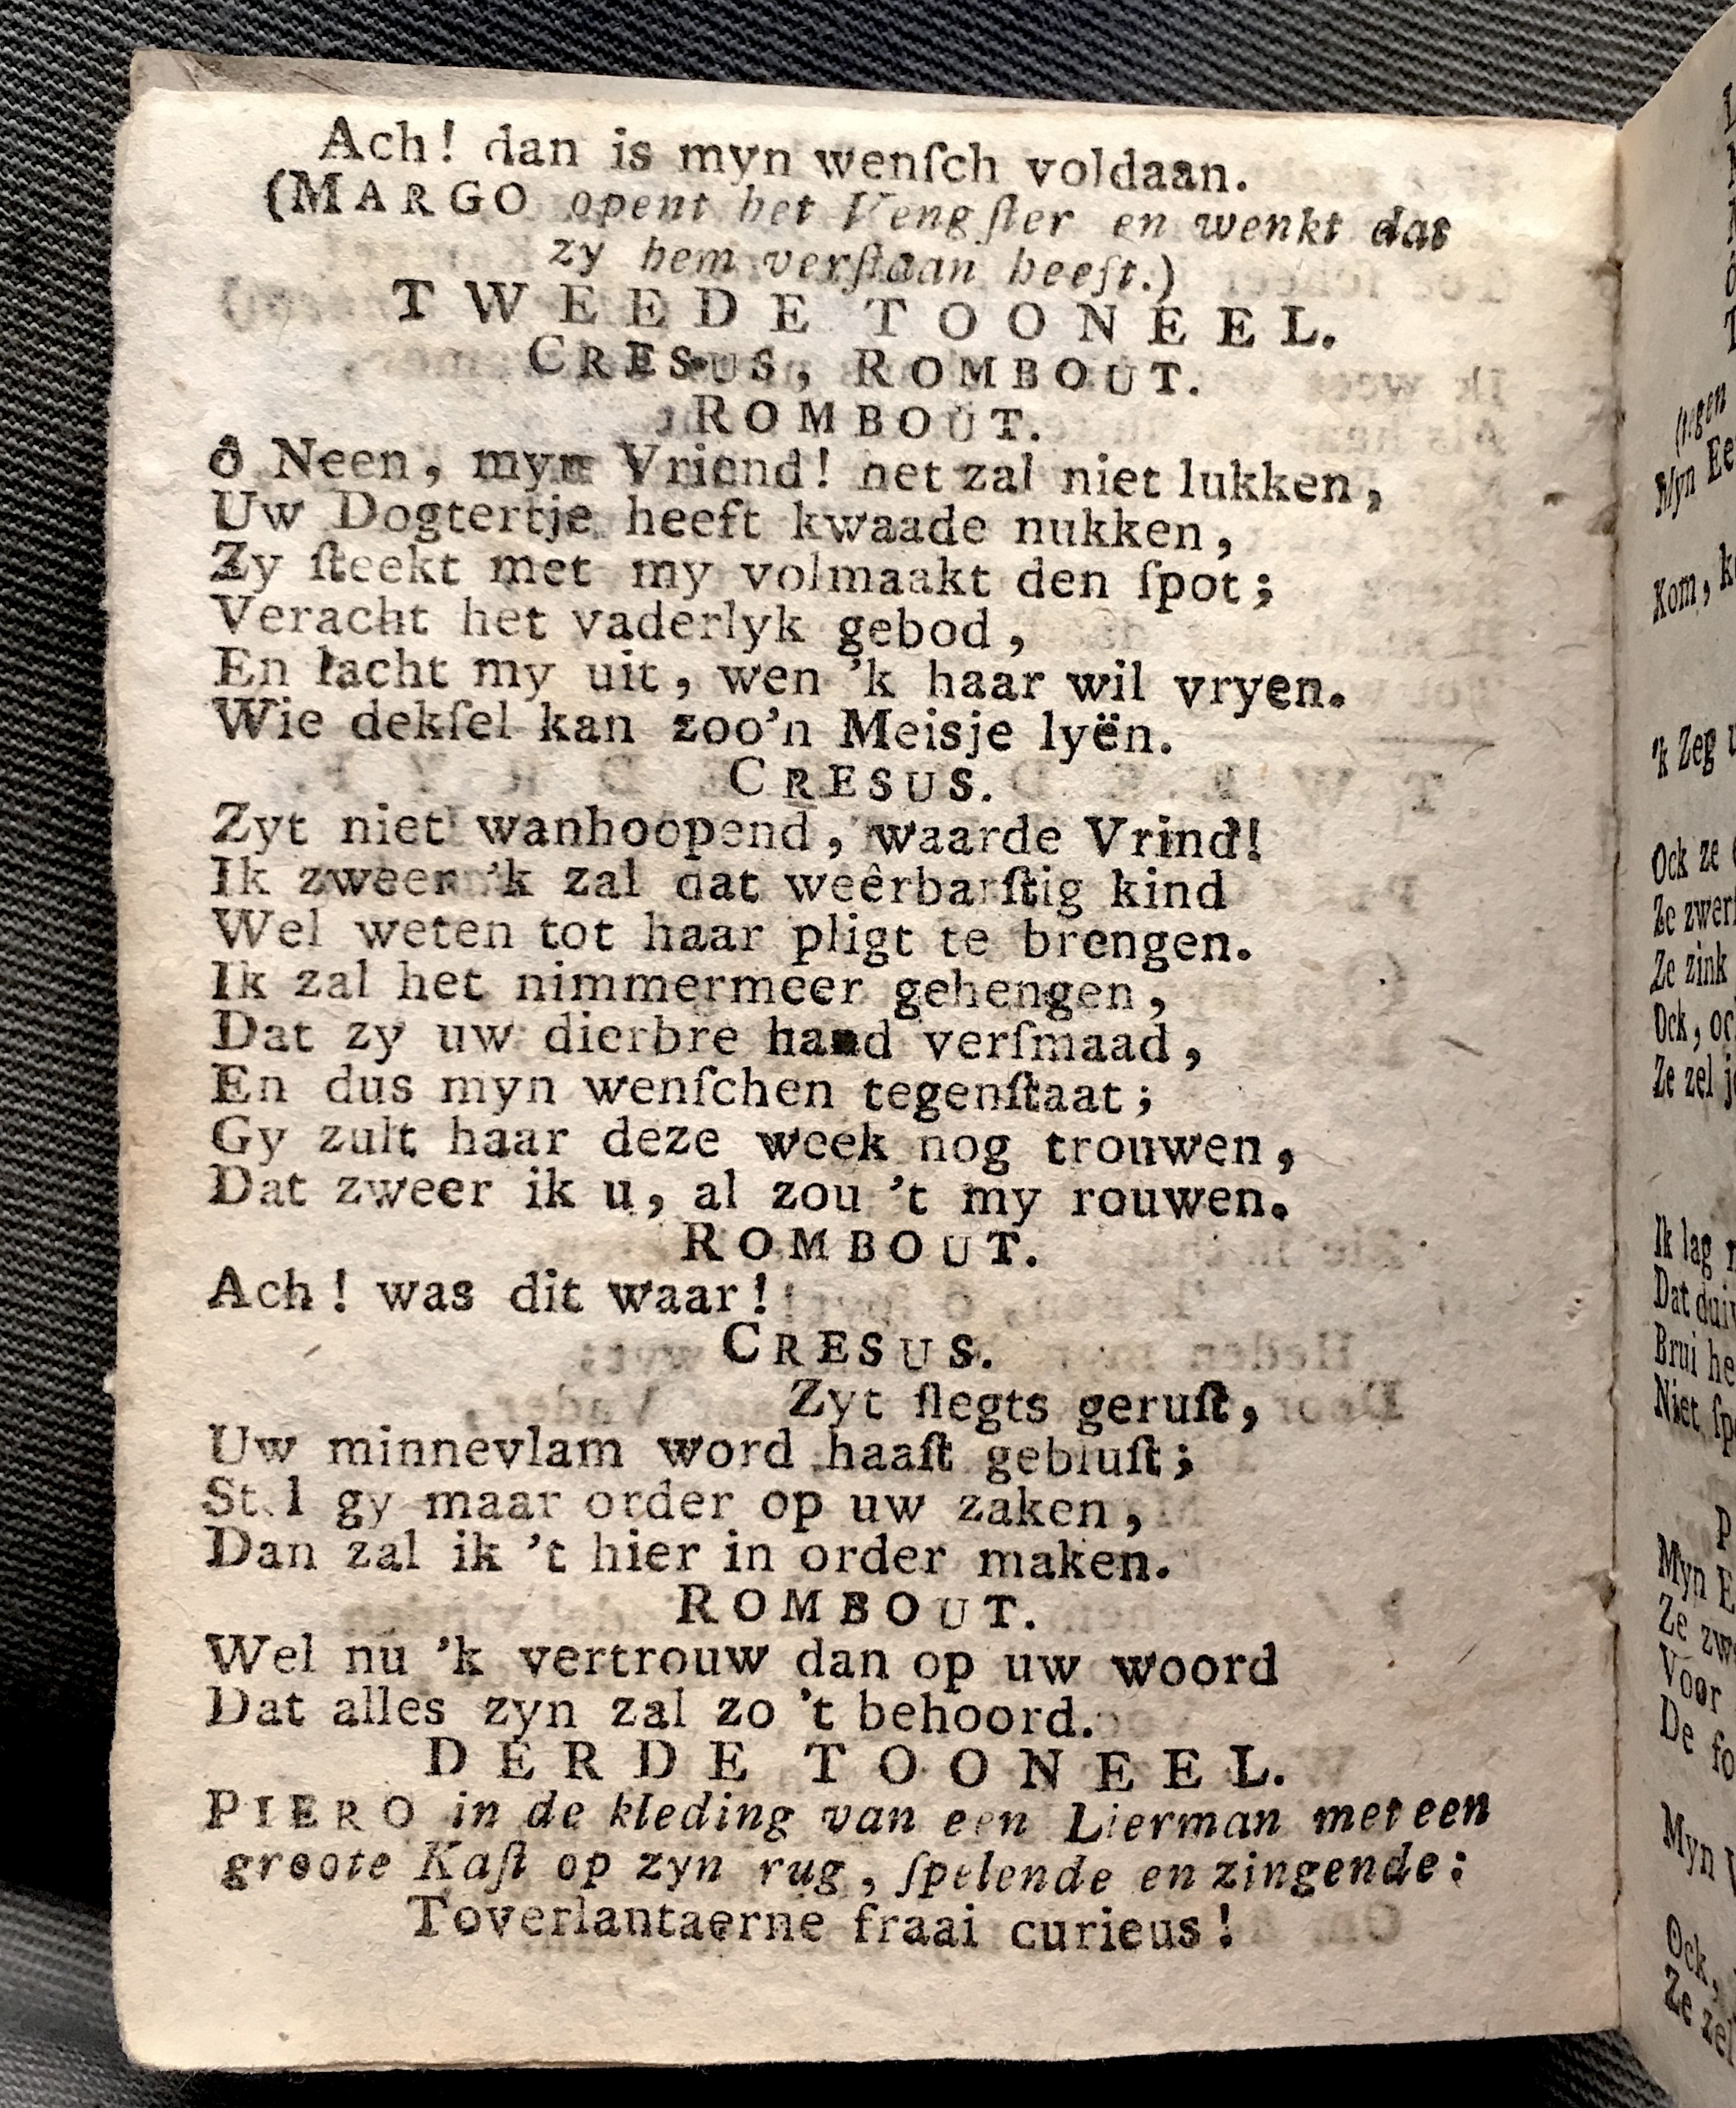 Ach! dan is myn wenſch voldaan.
(MARGO opent het Vengſter en wenkt dat
zy hem verſtaan heeft.)
TWEEDE TOONEEL.
CRESUS, ROMBOUT.
ROMBOUT.
ô Neen, myn Vriend! het zal niet lukken,
Uw Dogtertje heeft kwaade nukken,
Zy ſteekt met my volmaakt den ſpot;
Veracht het vaderlyk gebod,
En lacht my uit, wen 'k haar wil vryen.
Wie dekſel kan zoo'n Meisje lyën.
CRESUS.
Zyt niet wanhoopend, waarde Vrind!
Ik zweer 'k zal dat weêrbarſtig kind
Wel weten tot haar pligt te brengen.
Ik zal het nimmermeer gehengen,
Dat zy uw dierbre hand verſmaad,
En dus myn wenſchen tegenſtaat;
Gy zult haar deze week nog trouwen,
Dat zweer ik u, al zou 't my rouwen.
ROMBOUT.
Ach! was dit waar!
CRESUS.
Zyt ſlegts geruſt,
Uw minnevlam word haaſt gebluſt;
Stel gy maar order op uw zaken,
Dan zal ik 't hier in order maken.
ROMBOUT.
Wel nu 'k vertrouw dan op uw woord
Dat alles zyn zal zo 't behoord.
DERDE TOONEEL.
PIERO in de kleding van een Lierman met een
groote Kaſt op zyn rug, ſpelende en zingende:
Toverlantaerne fraai curieus!
(tegen
Myn
Kom,
'k Zeg
Ock ze
Ze
Ze zink
Ock,
Ze zel
Ik lag
Dat
Brui
Niet
Myn
Ze
Voor
De
Myn
Ock,
Ze